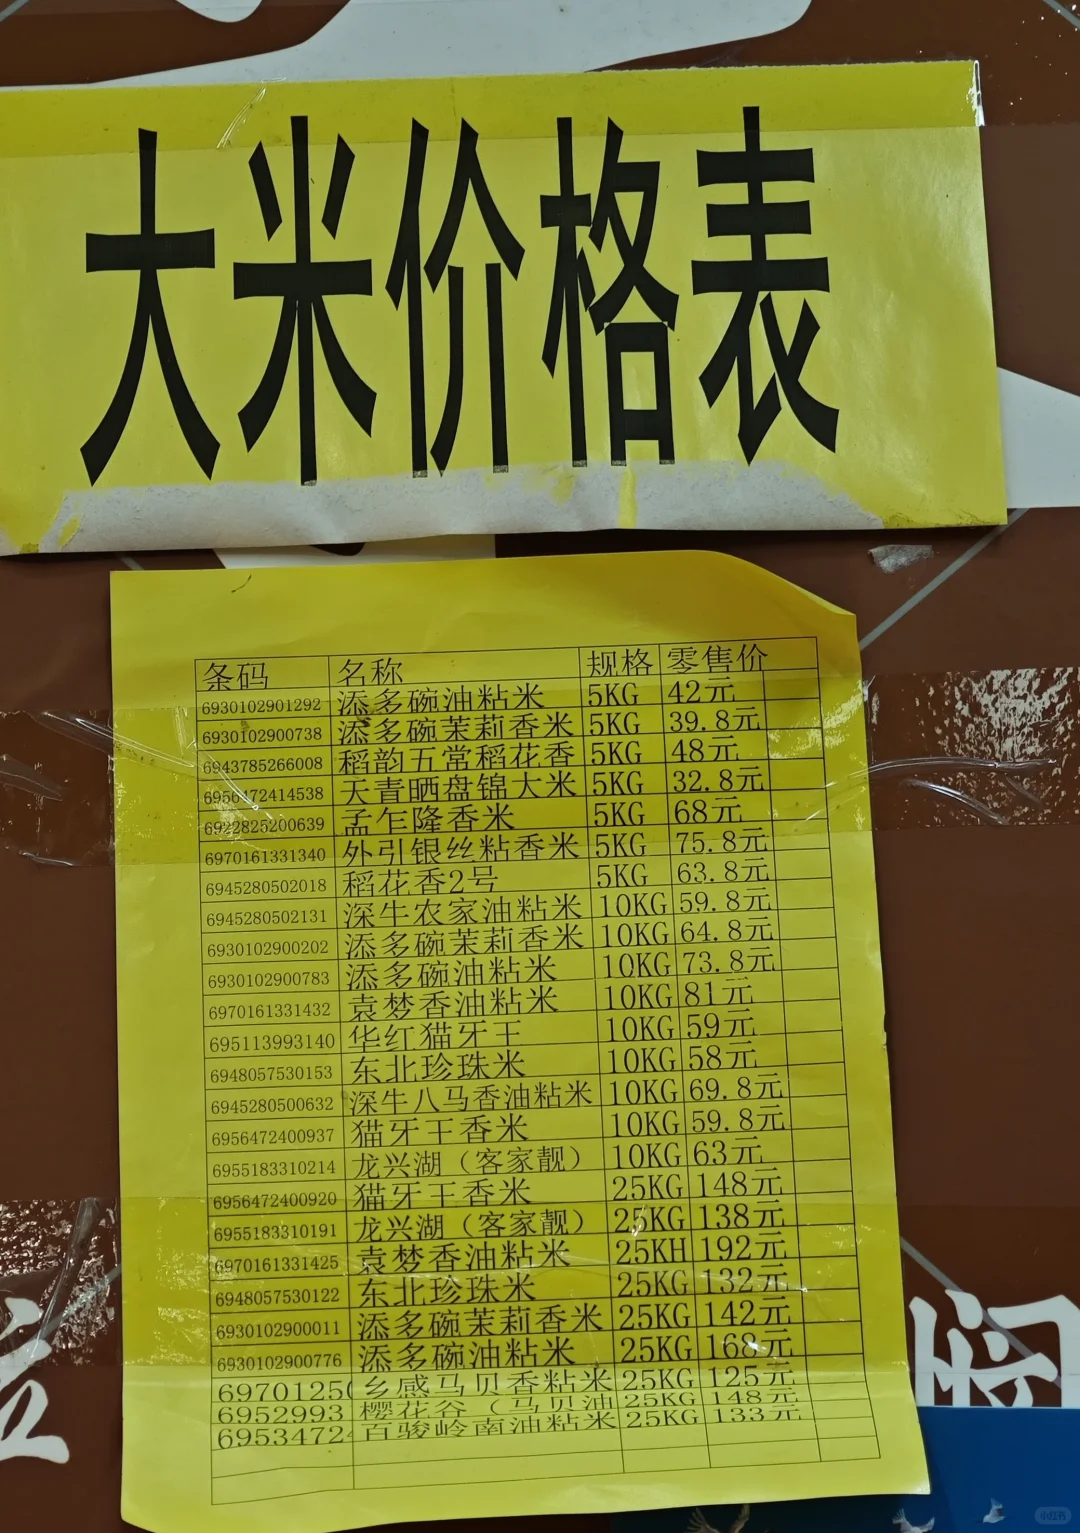 大米价格表
条码 名称 规格 零售价
6930102901292 添多碗油粘米 5KG 42元
6930102900738 添多碗茉莉香米 5KG 39.8元
6943785266008 稻韵五常稻花香 5KG 48元
6956472414538 天青晒盘锦大米 5KG 32.8元
6922825200639 孟乍隆香米 5KG 68元
6970161331340 外引银丝粘香米 5KG 75.8元
6945280502018 稻花香2号 5KG 63.8元
6945280502131 深牛农家油粘米 10KG 59.8元
6930102900202 添多碗茉莉香米 10KG 64.8元
6930102900783 添多碗油粘米 10KG 73.8元
6970161331432 袁梦香油粘米 10KG 81元
695113993140 华红猫牙王 10KG 59元
6948057530153 东北珍珠米 10KG 58元
6945280500632 深牛八马香油粘米 10KG 69.8元
6956472400937 猫牙王香米 10KG 59.8元
6955183310214 龙兴湖（客家靓） 10KG 63元
6956472400920 猫牙王香米 25KG 148元
6955183310191 龙兴湖（客家靓） 25KG 138元
6970161331425 袁梦香油粘米 25KH 192元
6948057530122 东北珍珠米 25KG 132元
6930102900011 添多碗茉莉香米 25KG 142元
6930102900776 添多碗油粘米 25KG 168元
6970125 乡感马贝香粘米 25KG 125元
6952993 樱花谷（马贝油 25KG 148元
6953472 百骏岭南油粘米 25KG 133元
小红书